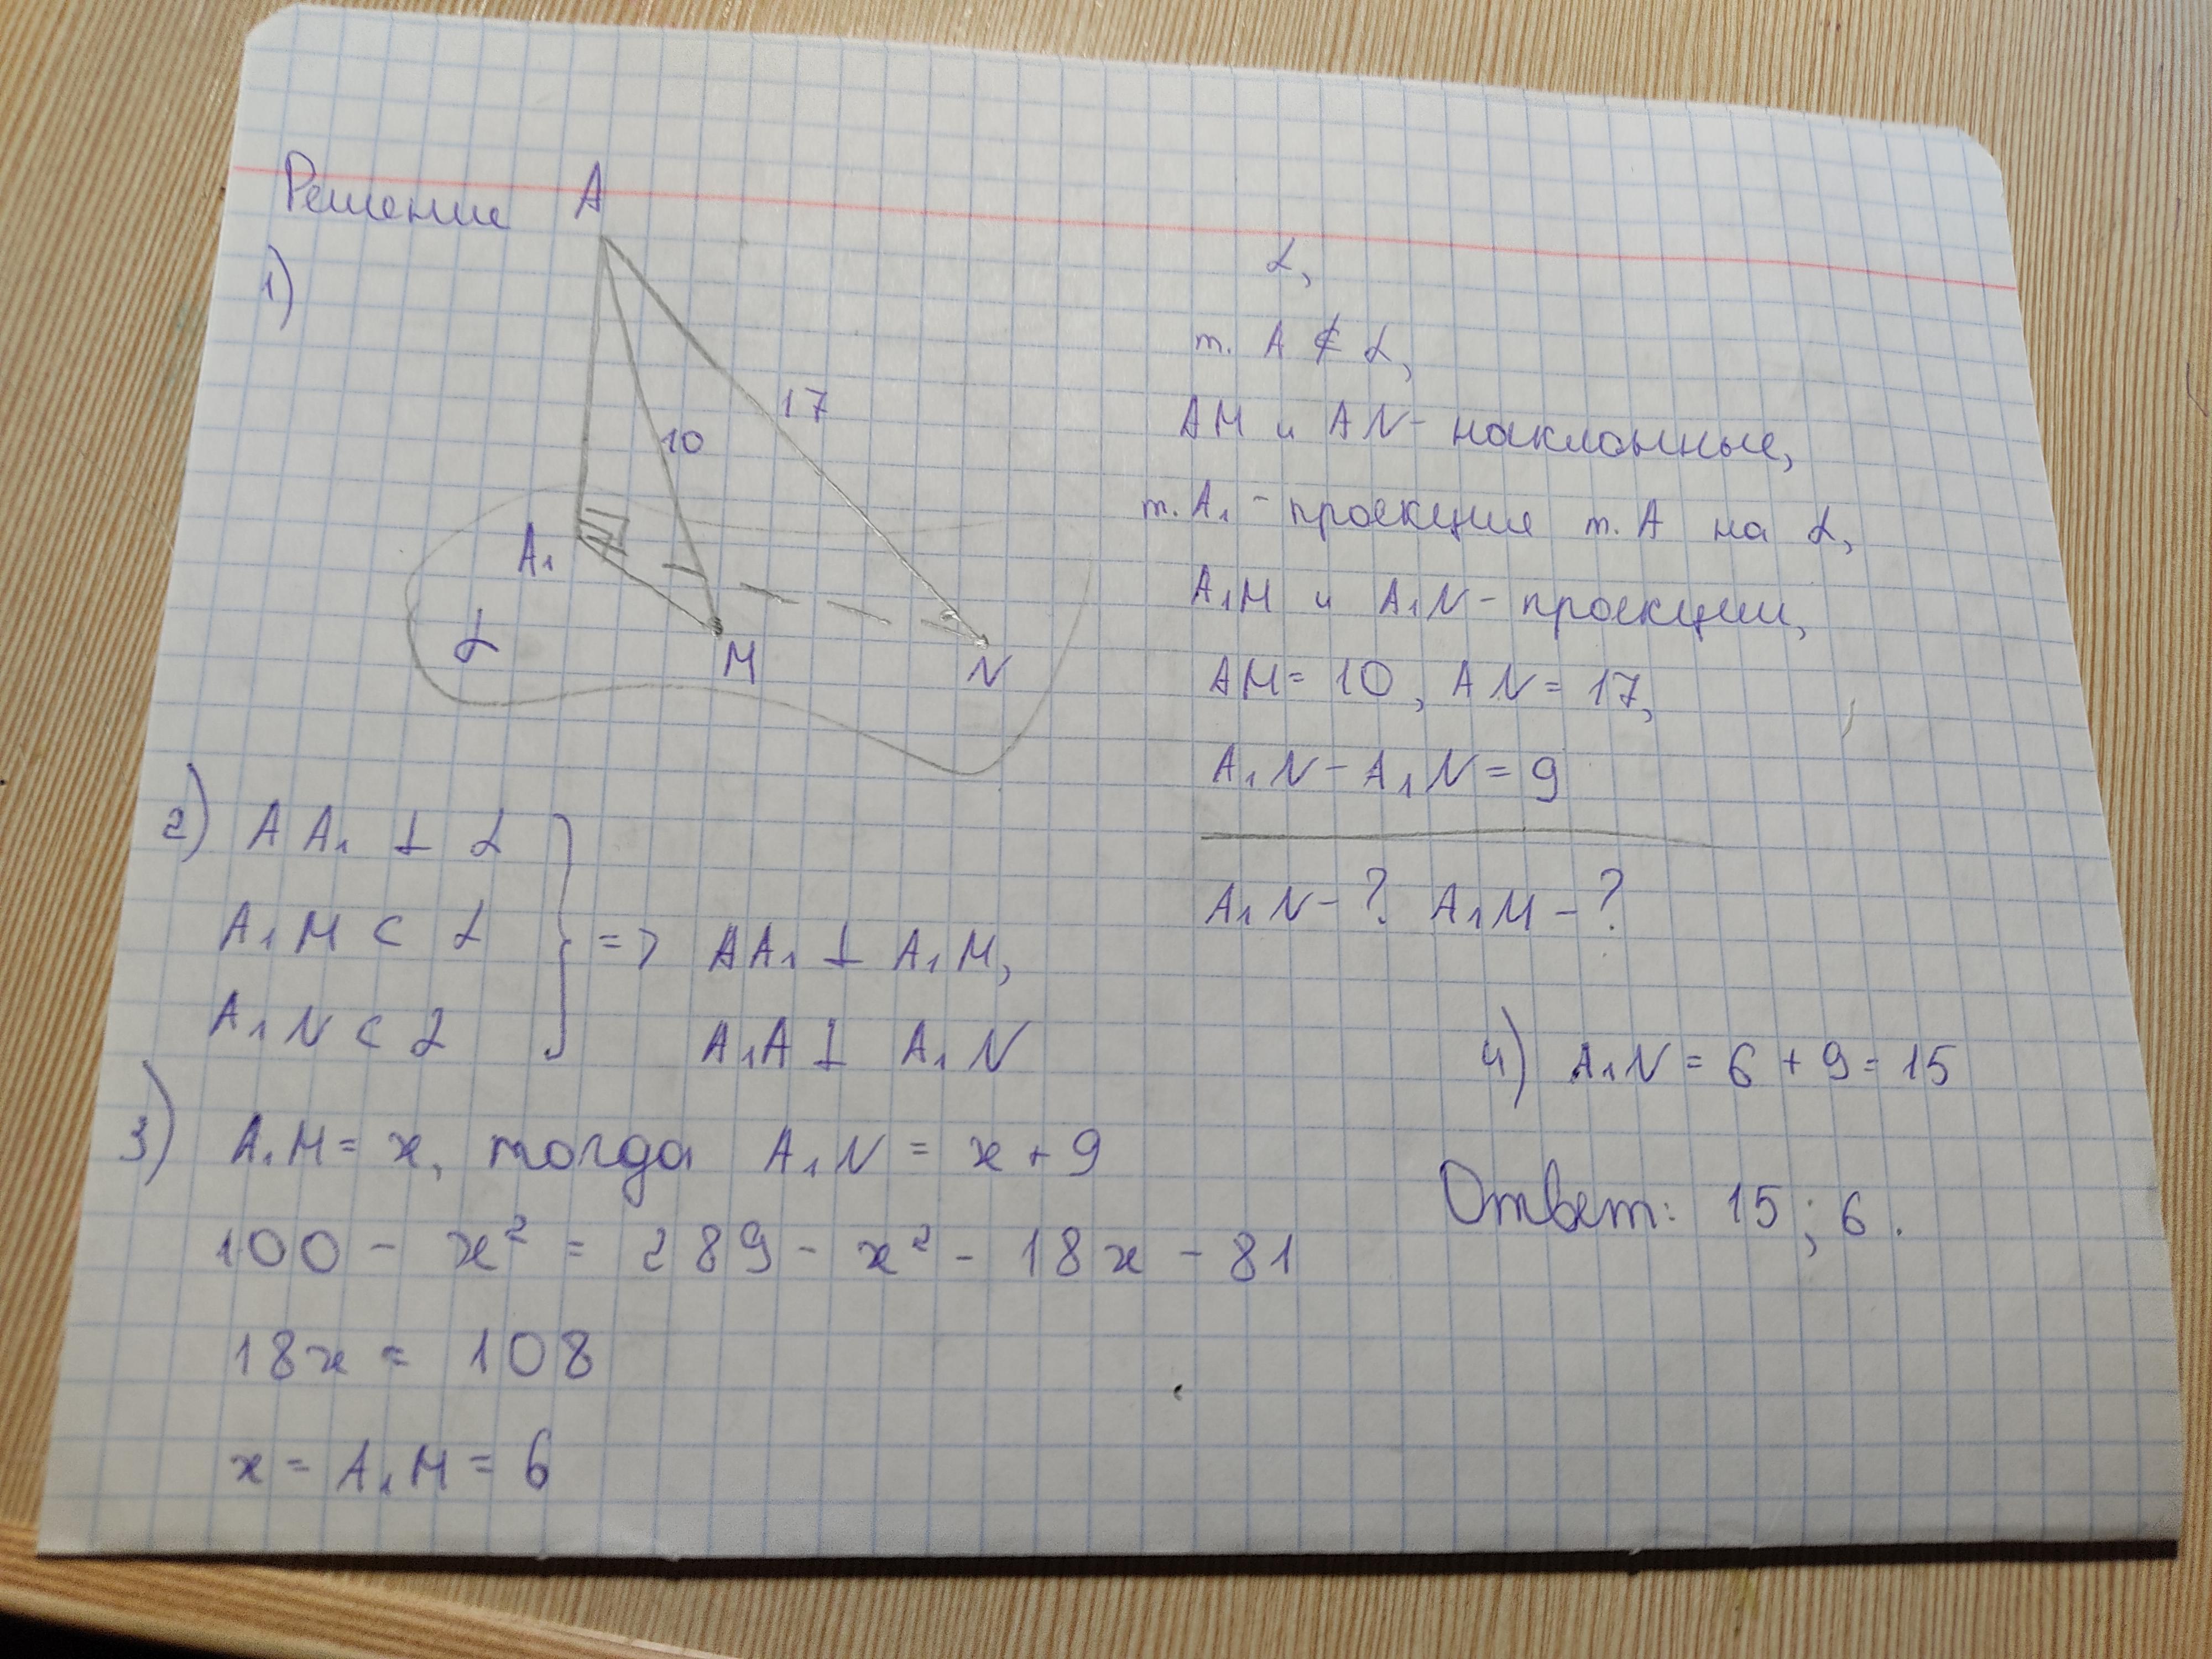 Решение
1)
A
17
10
A₁
α
M
N
α,
т. A ⊄ α,
AM и AN - наклонные,
т. A₁ - проекция т. A на α,
A₁M и A₁N - проекции,
AM = 10, AN = 17,
A₁N - A₁N = 9
A₁N - ? A₁M - ?
2) AA₁ ⊥ α
A₁M ⊂ α
A₁N ⊂ α
} => AA₁ ⊥ A₁M,
A₁A ⊥ A₁N
3) A₁M = x, тогда A₁N = x + 9
100 - x² = 289 - x² - 18x - 81
18x = 108
x = A₁M = 6
4) A₁N = 6 + 9 = 15
Ответ: 15; 6.